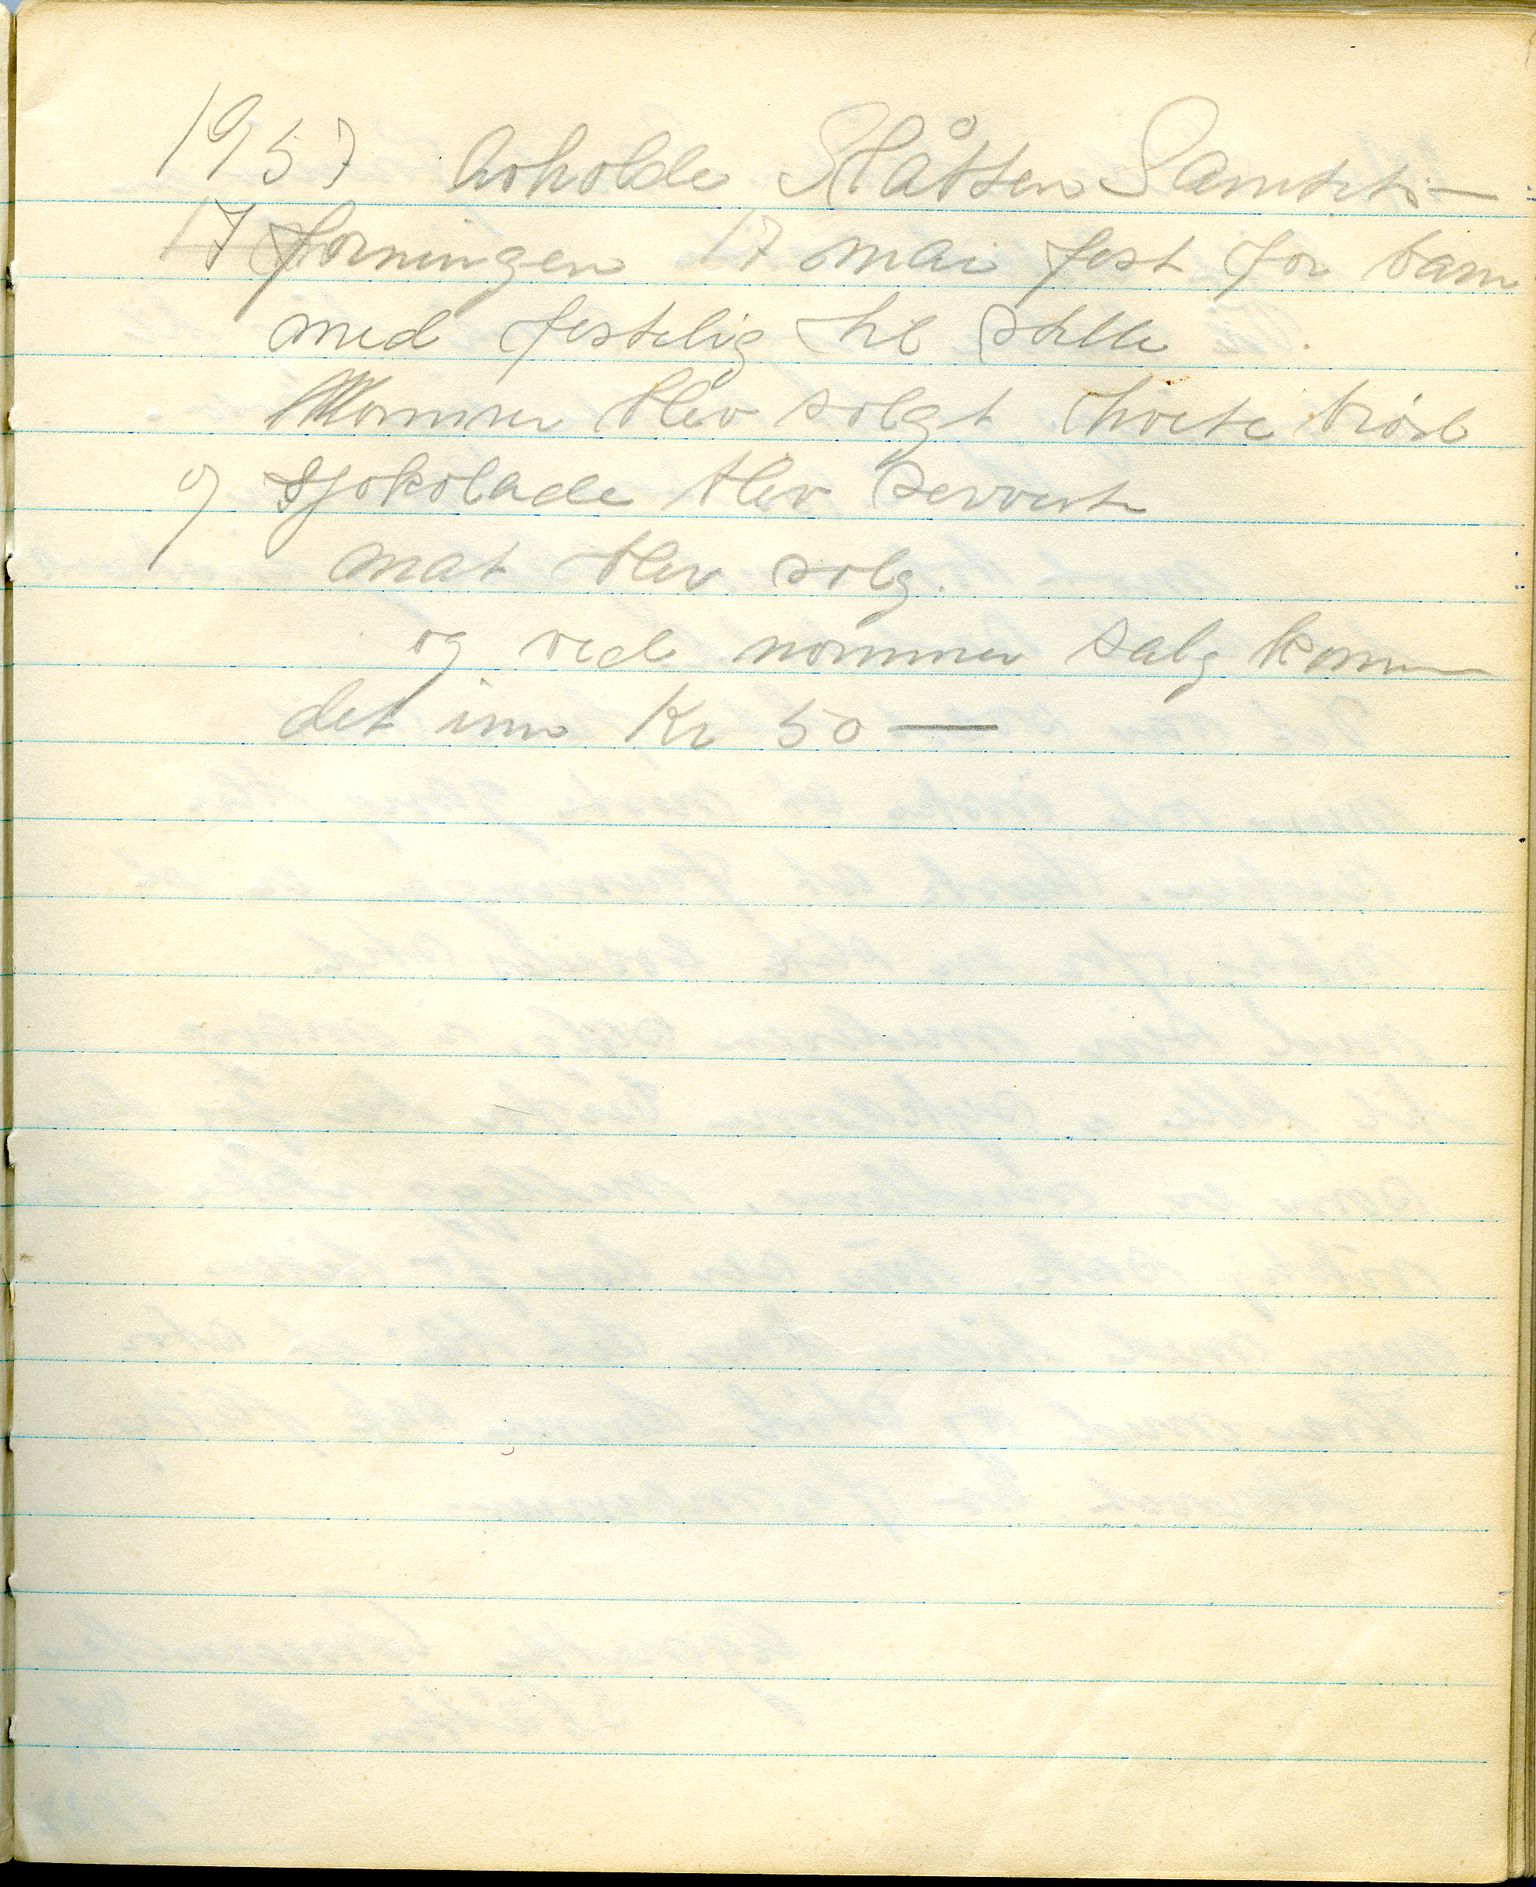 1957 avholde Slåtten Sanitets-
17 forningen 17 mai fest for barn
med festelig til stelle
Nommer blev solgt hvete brød
og sjokolade blev servert
mat blev solg.
og ved nommer salg kom
det inn Kr 50 —